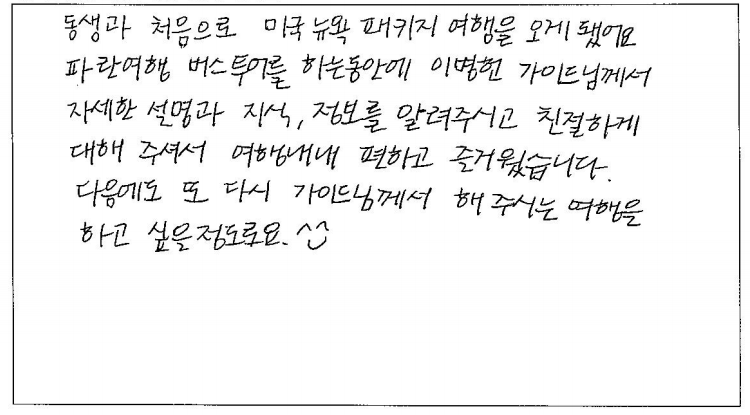 동생과 처음으로 미국 뉴욕 패키지 여행을 오게 됐어요
파란여행 버스투어를 하는동안에 이병헌 가이드님께서
자세한 설명과 지식, 정보를 알려주시고 친절하게
대해 주셔서 여행내내 편하고 즐거웠습니다.
다음에도 또 다시 가이드님께서 해 주시는 여행을
하고 싶을정도로요. ^^